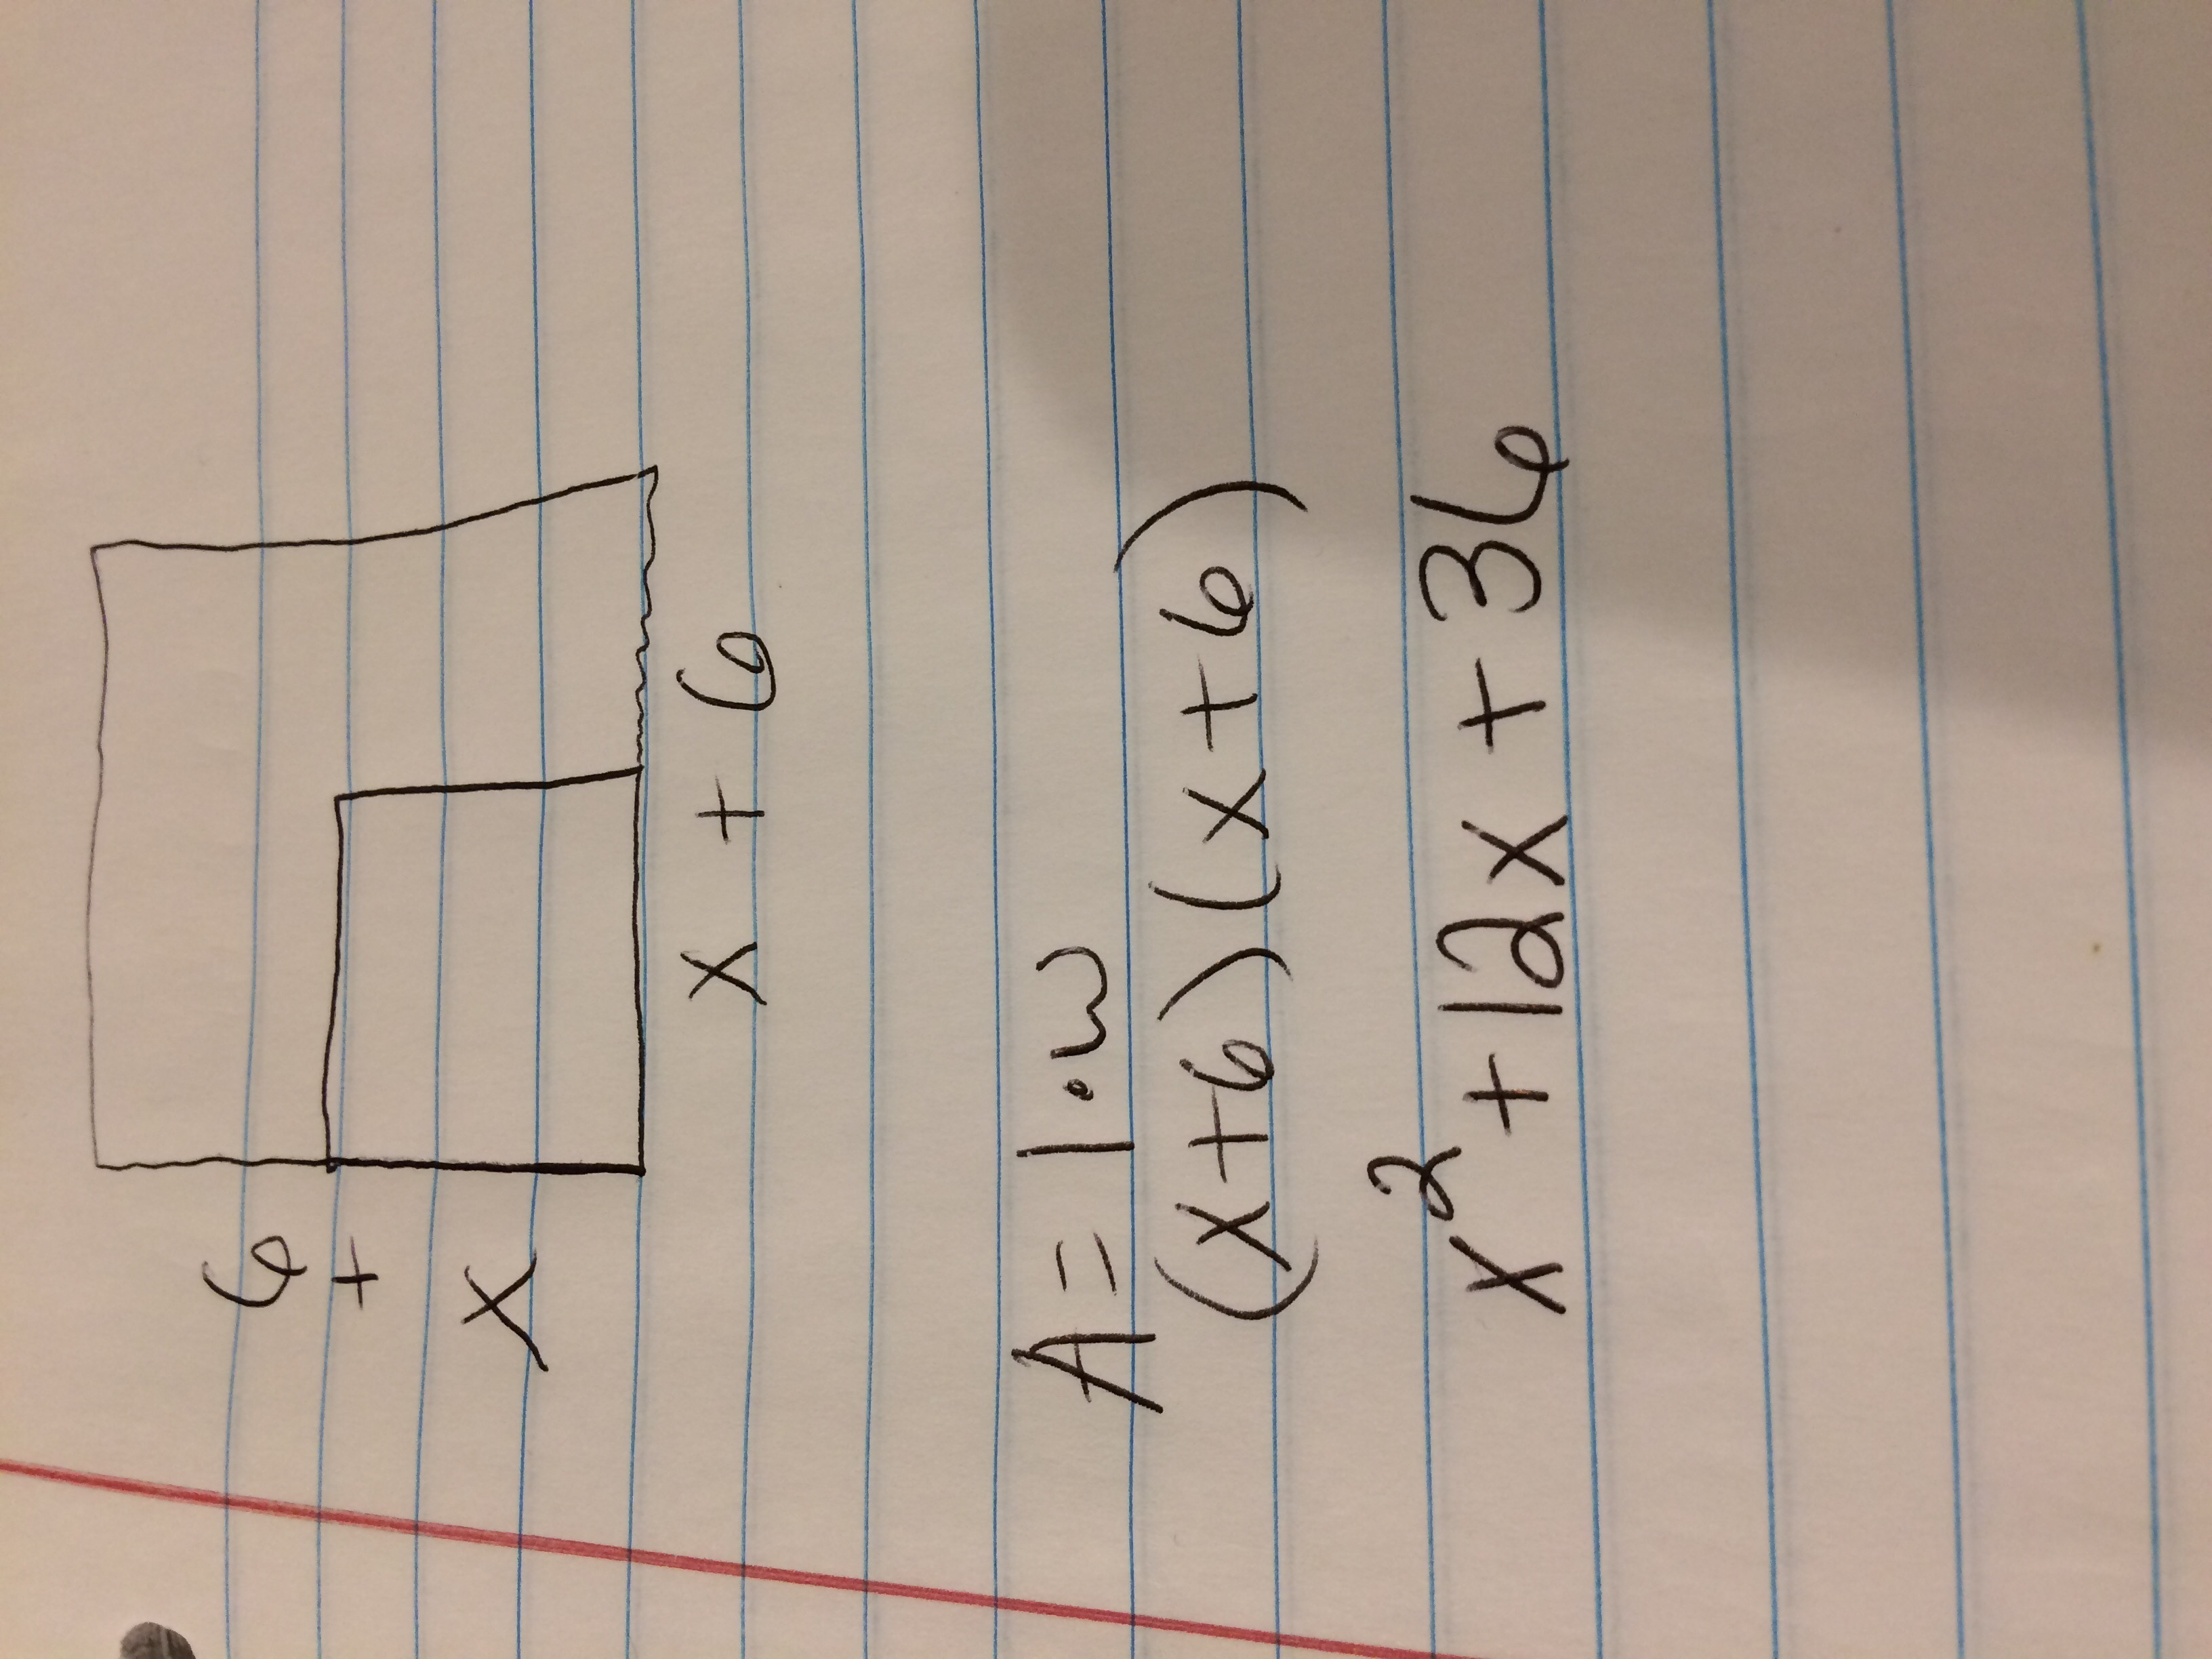 6
+
x
x + 6
A = l·w
(x+6)(x+6)
x² + 12x + 36